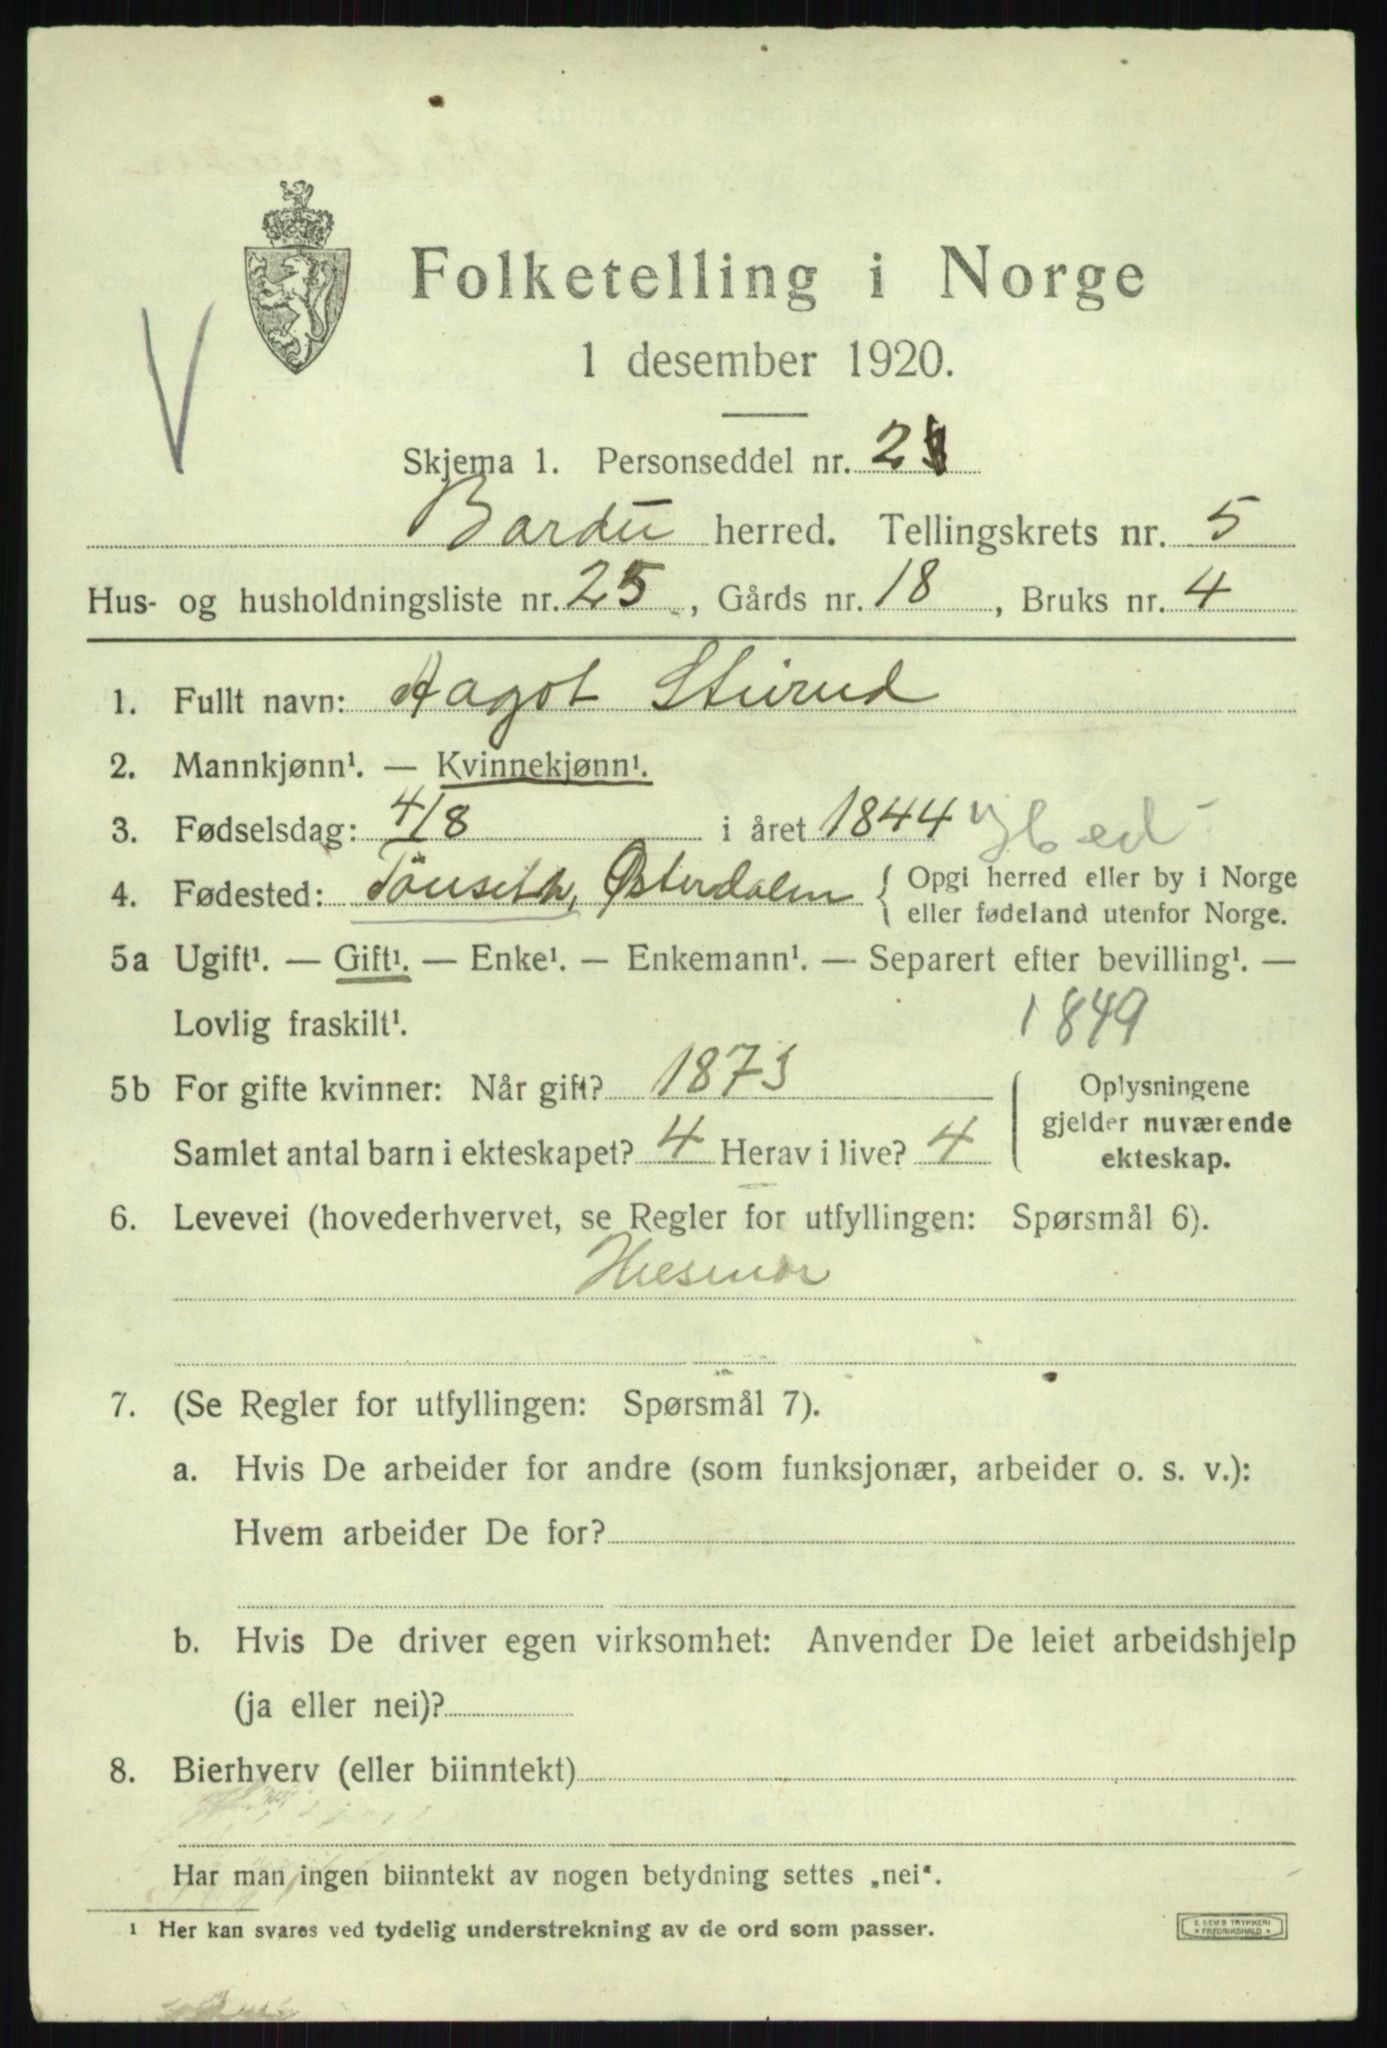 Folketelling i Norge
1 desember 1920.
V
Skjema 1. Personseddel nr. 21
Bardu herred. Tellingskrets nr. 5
Hus- og husholdningsliste nr. 25, Gårds nr. 18, Bruks nr. 4
1. Fullt navn: Aagot Sturud
2. Mannkjønn¹. — Kvinnekjønn¹.
3. Fødselsdag: 4/8 i året 1844
4. Fødested: Tönseth, Østerdalen { Opgi herred eller by i Norge
eller fødeland utenfor Norge.
5a Ugift¹. — Gift¹. — Enke¹. — Enkemann¹. — Separert efter bevilling¹. —
Lovlig fraskilt¹. 1849
5b For gifte kvinner: Når gift? 1873 Oplysningene
gjelder nuværende
Samlet antal barn i ekteskapet? 4 Herav i live? 4 ekteskap.
6. Levevei (hovederhvervet, se Regler for utfyllingen: Spørsmål 6).
Husmor
7. (Se Regler for utfyllingen: Spørsmål 7).
a. Hvis De arbeider for andre (som funksjonær, arbeider o. s. v.):
Hvem arbeider De for?
b. Hvis De driver egen virksomhet: Anvender De leiet arbeidshjelp
(ja eller nei)?
8. Bierhverv (eller biinntekt)
Har man ingen biinntekt av nogen betydning settes „nei".
¹ Her kan svares ved tydelig understrekning av de ord som passer.
E. SEM'S TRYKKERI
FREDRIKSHALD